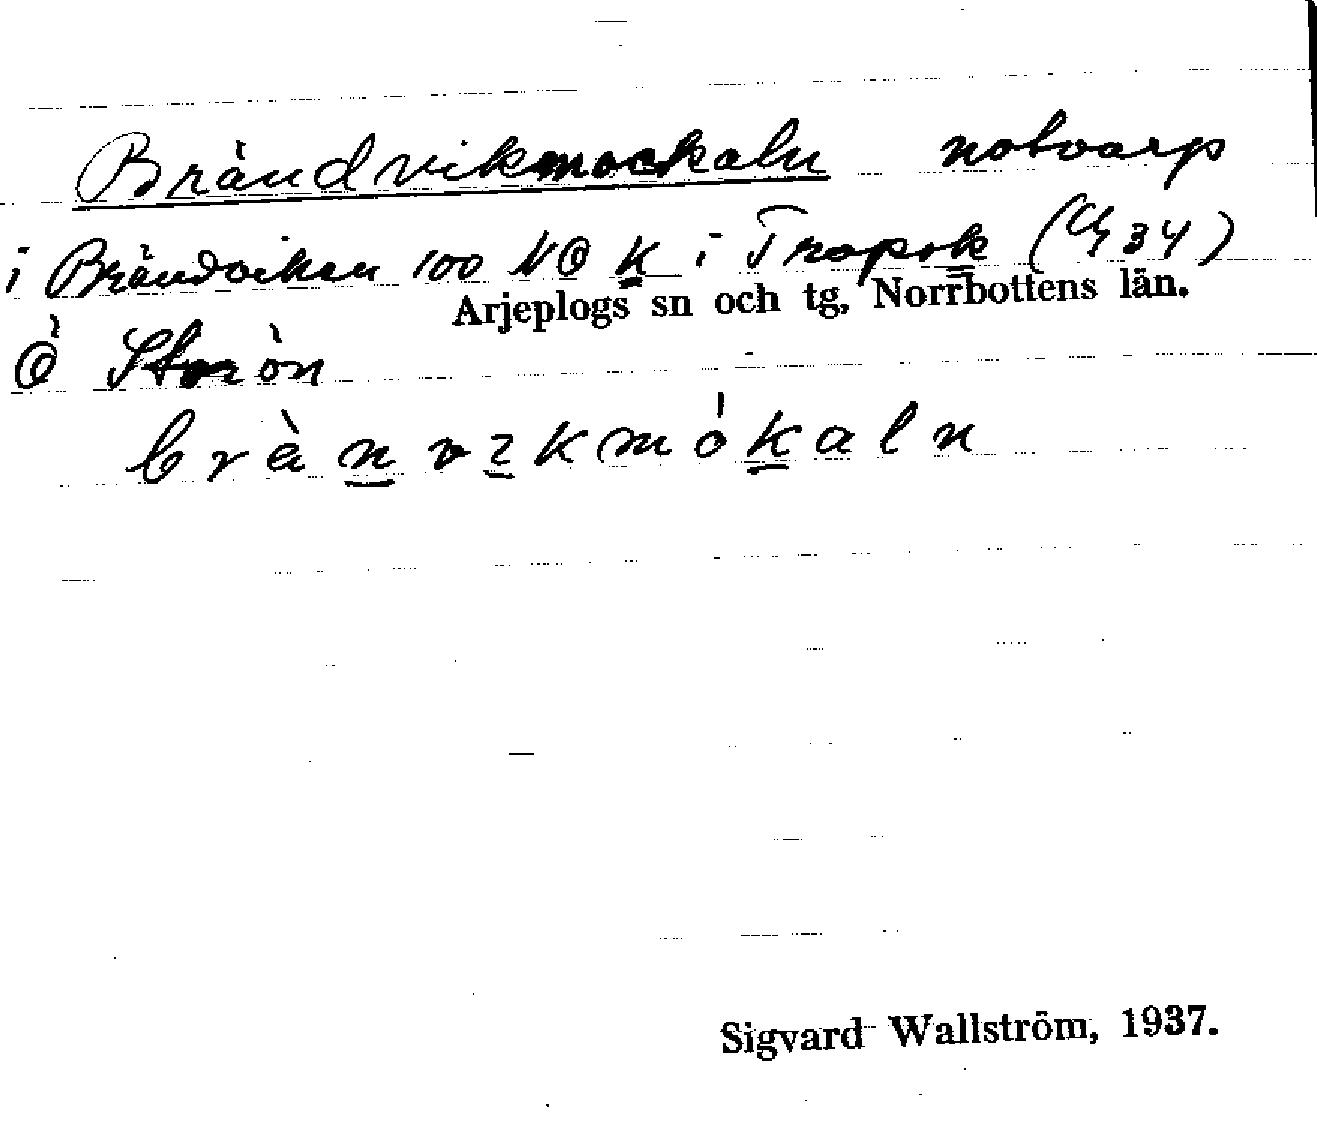 Brändvikmockaln notvarp
i Brändviken 100 NO K i Tropok (C 34)
Arjeplogs sn och tg, Norrbottens län.
Ö Storön
brànvikmókaln
Sigvard Wallström, 1937.